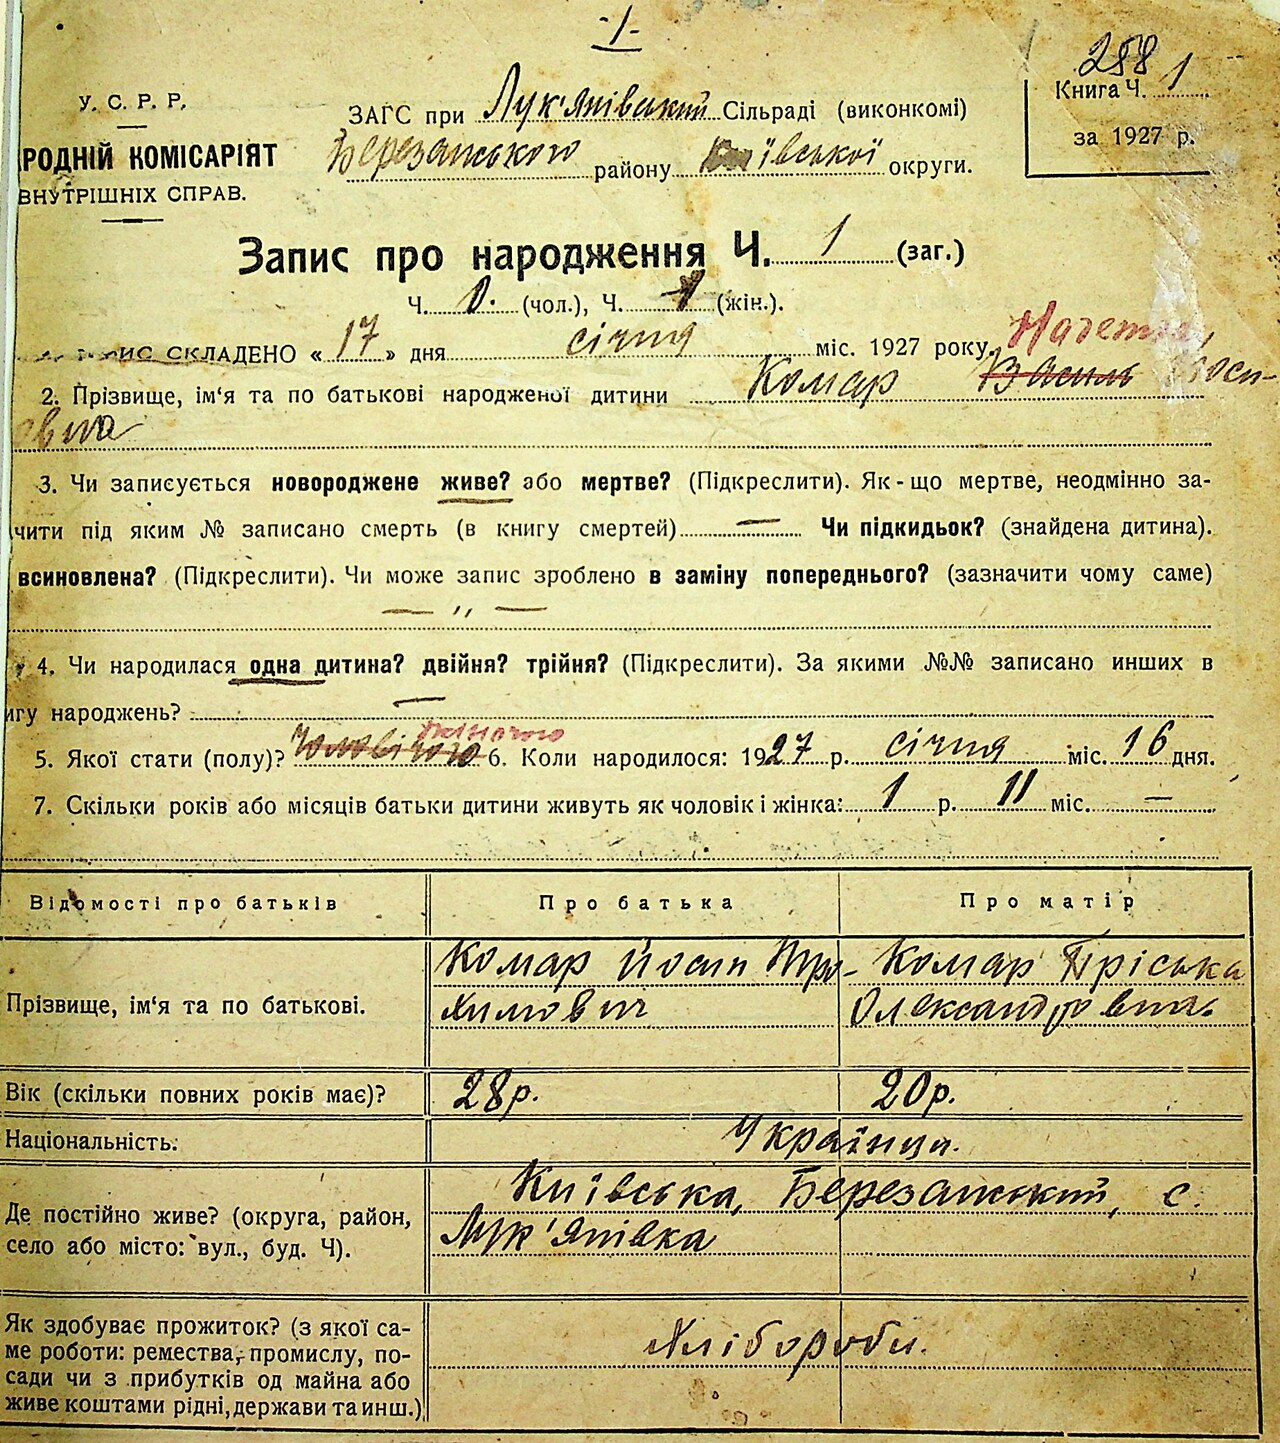 -1-
258
У. С. Р. Р.
ЗАГС при Лук'янівській Сільраді (виконкомі)
Книга Ч. 1
РОДНІЙ КОМІСАРІЯТ
Березанського району Київської округи.
за 1927 р.
ВНУТРІШНІХ СПРАВ.
Запис про народження Ч. 1 (заг.)
Ч. 0. (чол.), Ч. 1 (жін.).
СКЛАДЕНО « 17 » дня січня міс. 1927 року.
2. Прізвище, ім'я та по батькові народженої дитини Комар Василь Йоси-
овна
3. Чи записується новороджене живе? або мертве? (Підкреслити). Як-що мертве, неодмінно за-
чити під яким № записано смерть (в книгу смертей) — Чи підкидьок? (знайдена дитина).
всиновлена? (Підкреслити). Чи може запис зроблено в заміну попереднього? (зазначити чому саме)
— „ —
4. Чи народилася одна дитина? двійня? трійня? (Підкреслити). За якими №№ записано инших в
игу народжень? —
5. Якої стати (полу)? Чоловічого жіночого 6. Коли народилося: 1927 р. січня міс. 16 дня.
7. Скільки років або місяців батьки дитини живуть як чоловік і жінка: 1 р. 11 міс. —
Відомості про батьків Про батька Про матір
Прізвище, ім'я та по батькові. Комар Йосип Тро- Комар Пріська
химович Олександровна
Вік (скільки повних років має)? 28р. 20р.
Національність: Українці.
Де постійно живе? (округа, район, Київська, Березанський, с.
село або місто: вул., буд. Ч). Лук'янівка
Як здобуває прожиток? (з якої са-
ме роботи: ремества, промислу, по- Хлібороби.
сади чи з прибутків од майна або
живе коштами рідні, держави та инш.)